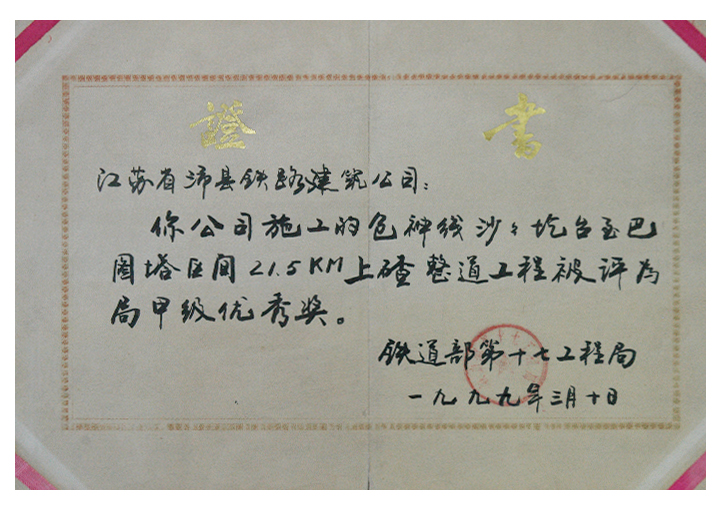 證書
江苏省沛县铁路建筑公司：
你公司施工的包神线沙々圪台至巴
图塔区间21.5KM上碴整道工程被评为
局甲级优秀奖。
铁道部第十七工程局
一九九九年三月十日